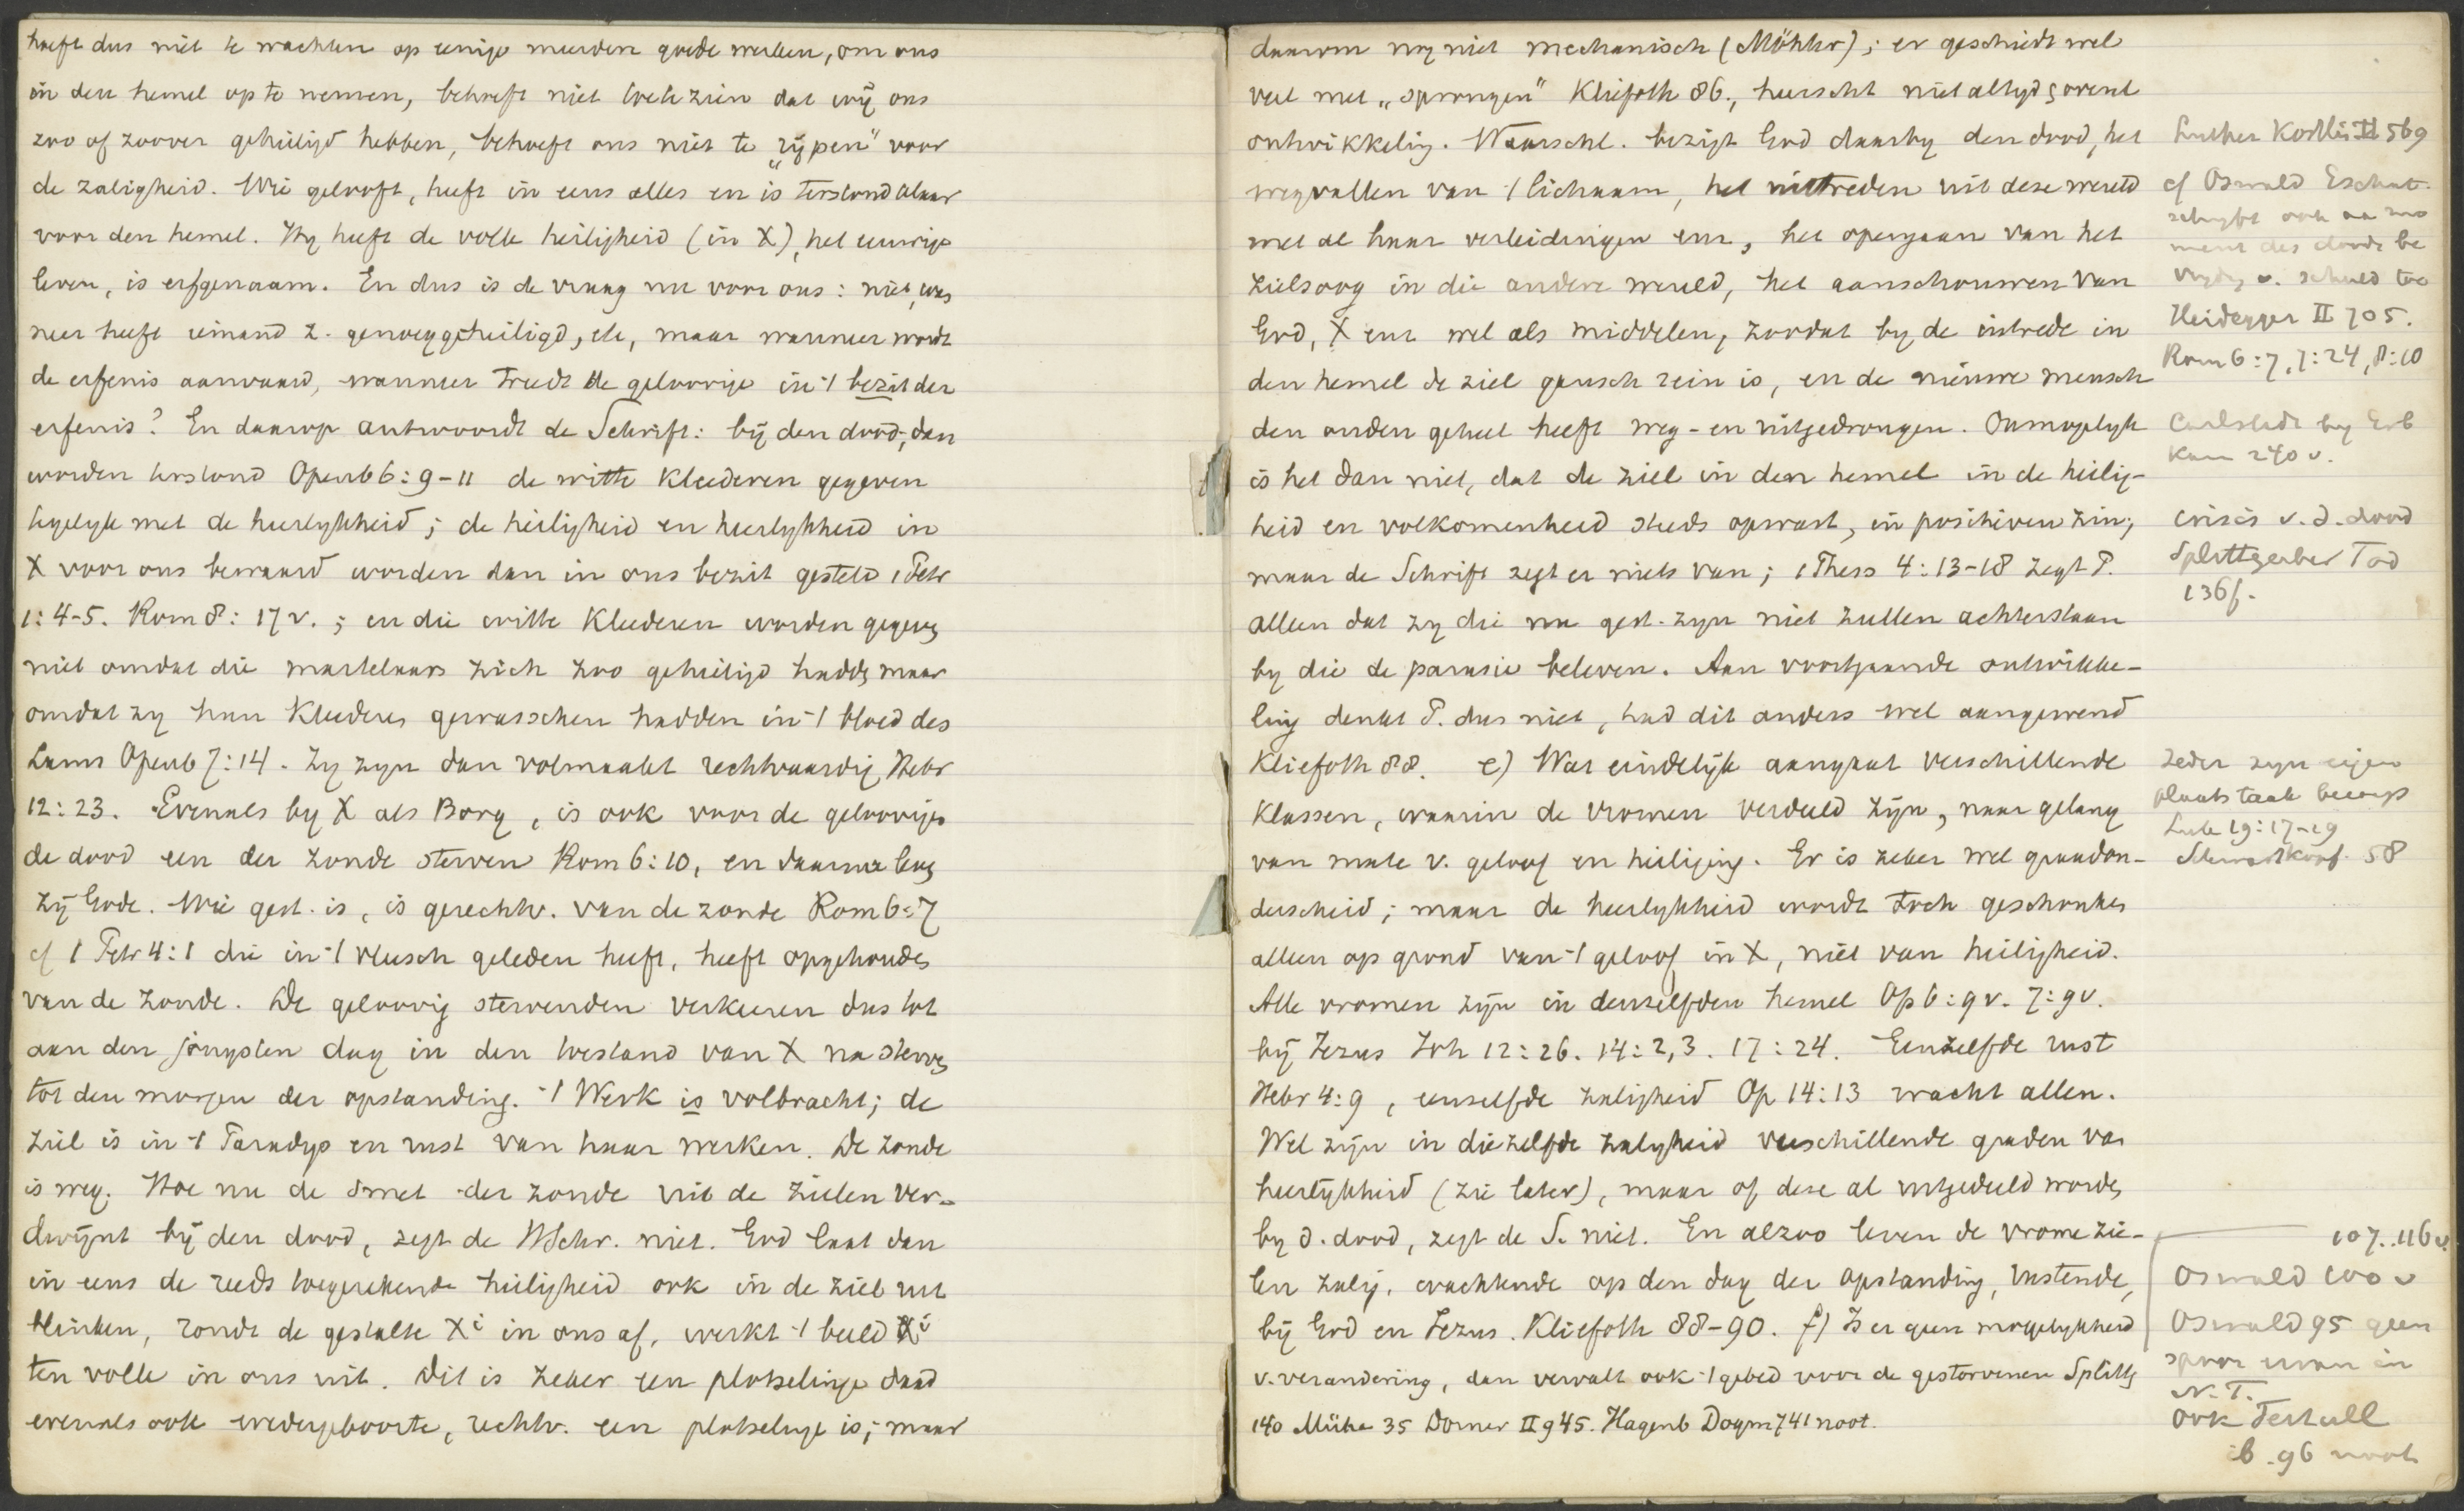 hoeft dus niet te wachten op eenige meerdere goede werken, om ons
in den hemel op te nemen, behoeft niet toe te zien dat wij ons
zoo of zoover geheiligd hebben, behoeft ons niet te „rijpen" voor
de zaligheid. Wie gelooft, heeft in eens alles en is terstond klaar
voor den hemel. Hy heeft de volle heiligheid (in X), het eeuwige
leven, is erfgenaam. En dus is de vraag nu voor ons: niet, wan
neer heeft iemand z. genoeg geheiligd, etc, maar wanneer wordt
de erfenis aanvaard, wanneer treedt de geloovige in 't bezit der
erfenis? En daarop antwoordt de Schrift: bij den dood, dan
worden terstond Openb 6:9-11 de witte kleederen gegeven
tegelyk met de heerlykheid; de heiligheid en heerlykheid in
X voor ons bewaard worden dan in ons bezit gesteld 1 Petr
1:4-5. Rom 8:17 v.; en die witte kleederen worden gegeven
niet omdat die martelaars zich zoo geheiligd hadden maar
omdat zy hun kleederen gewasschen hadden in 't bloed des
Lams Openb 7:14. Zy zyn dan volmaakt rechtvaardig, Hebr
12:23. Evenals by X als Borg, is ook voor de geloovigen
de dood een der zonde sterven Rom 6:10, en daarna leven
zij Gode. Wie gest. is, is gerechtv. van de zonde Rom 6:7
cf 1 Petr 4:1 die in 't vleesch geleden heeft, heeft opgehouden
van de zonde. De geloovig stervenden verkeeren dus tot
aan den jongsten dag in den toestand van X na sterven
tot den morgen der opstanding. 't Werk is volbracht; de
ziel is in 't Paradys en rust van haar werken. De zonde
is weg. Hoe nu de smet der zonde uit de zielen ver-
dwijnt bij den dood, zegt de HSchr. niet. God laat dan
in eens de reeds toegerekende heiligheid ook in de ziel uit
blinken, rondt de gestalte Xi in ons af, werkt 't beeld Xi
ten volle in ons uit. Dit is zeker een plotselinge daad
evenals ook wedergeboorte, rechtv. een plotselinge is; maar
daarom nog niet mechanisch (Möhler); er geschiedt wel
veel met „sprongen" Kliefoth 86., heerscht niet altyd gewone
ontwikkeling. Waarschl. bezigt God daarby den dood, het
wegvallen van 't lichaam, het uittreden uit deze wereld
met al haar verleidingen enz, het opengaan van het
zielsoog in die andere wereld, het aanschouwen van
God, X enz wel als middelen, zoodat by de intrede in
den hemel de ziel gansch rein is, en de nieuwe mensch
den ouden geheel heeft weg- en uitgedrongen. Onmogelyk
is het dan niet, dat de ziel in den hemel in de heilig-
heid en volkomenheid steeds opwast, in positieven zin;
maar de Schrift zegt er niets van; 1 Thess 4:13-18 zegt P.
alleen dat zy die nu gest. zyn niet zullen achterstaan
by die de parusie beleven. Aan voortgaande ontwikke-
ling denkt P. dus niet, had dit anders wel aangewend
Kliefoth 88. e) Wat eindelijk aangaat verschillende
Klassen, waarin de vromen verdeeld zijn, naar gelang
van mate v. geloof en heiliging. Er is zeker wel graadon-
derscheid; maar de heerlykheid wordt toch geschonken
alleen op grond van 't geloof in X, niet van heiligheid.
Alle vromen zijn in denzelfden hemel Op 6:9 v. 7:9 v.
bij Jezus Joh 12:26. 14:2,3. 17:24. Eenzelfde rust
Hebr 4:9, eenzelfde zaligheid Op 14:13 wacht allen.
Wel zijn in diezelfde zaligheid verschillende graden van
heerlijkheid (zie later), maar of deze al uitgedeeld worden
by d. dood, zegt de S. niet. En alzoo leven de vrome zie-
len zalig, wachtende op den dag der opstanding, rustende,
bij God en Jezus. Kliefoth 88-90. f) Is er geen mogelykheid
v. verandering, dan vervalt ook 't gebed voor de gestorvenen Splittg
140 Mühe 35 Dorner II 945. Hagenb Dogm 741 noot.
Luther Köstlin II 569
cf Oswald Eschat.
schryft ook aan mo
ment des doods be
vryding v. schuld toe
Heidegger II 705.
Rom 6:7, 7:24, 8:10
Carlstadt by Erb
kam 240 v.
crisis v. d. dood
Splittgerber Tod
136f.
Ieder zyn eigen
plaats taak beroep
Luk 19:17-19
58
107. 116 v.
Oswald 100 v
Oswald 95 geen
spoor ervan in
N.T.
ook Tertull
ib. 96 noot